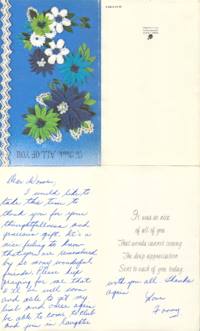 To Thank ALL OF YOU
I would like to
take this time to
thank you for your
thoughtfulness and
gracious gift. It's a
nice feeling to know
that you are remembered
by so many wonderful
friends. Please keep
praying for me that
I'll be well soon
and able to get my
and once again
be able to come to Club
and join in laughter
It was so nice
of all of you
That words cannot convey
The deep appreciation
Sent to each of you today.
with you all. Thanks
again
Love